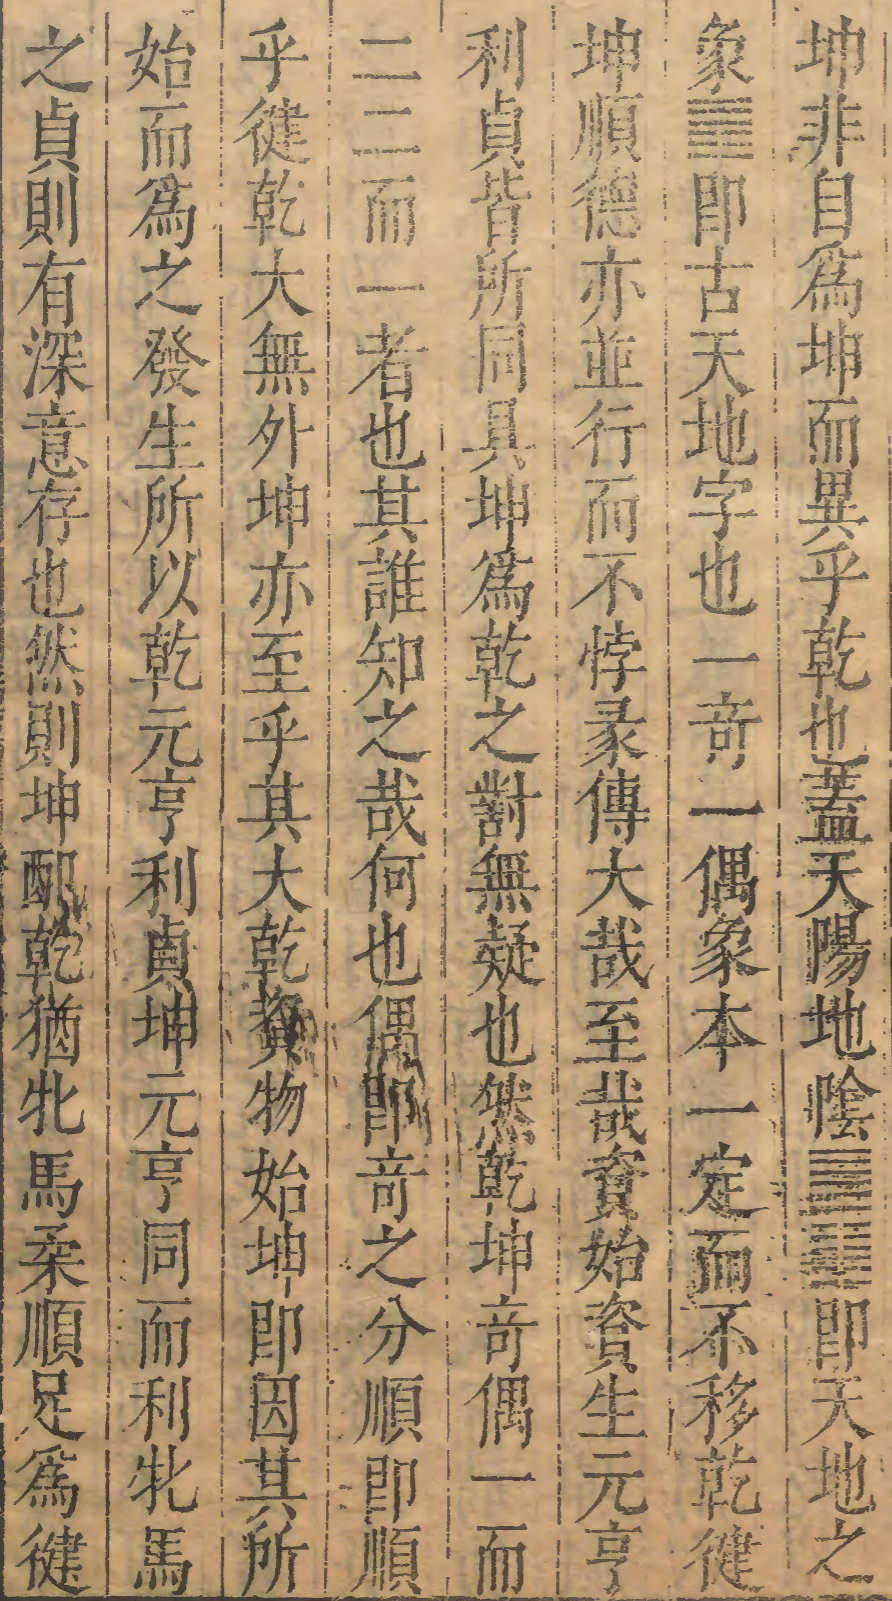 坤非自為坤而異乎乾也蓋天陽地陰䷀䷁即天地之
象䷁即古天地字也一奇一偶象本一定而不移乾健
坤順德亦並行而不悖彖傳大哉至哉資始資生元亨
利貞皆所同具坤為乾之對無疑也然乾坤奇偶一而
二二而一者也其誰知之哉何也偶即奇之分順即順
乎健乾大無外坤亦至乎其大乾資物始坤即因其所
始而為之發生所以乾元亨利貞坤元亨同而利牝馬
之貞則有深意存也然則坤配乾猶牝馬柔順足為健